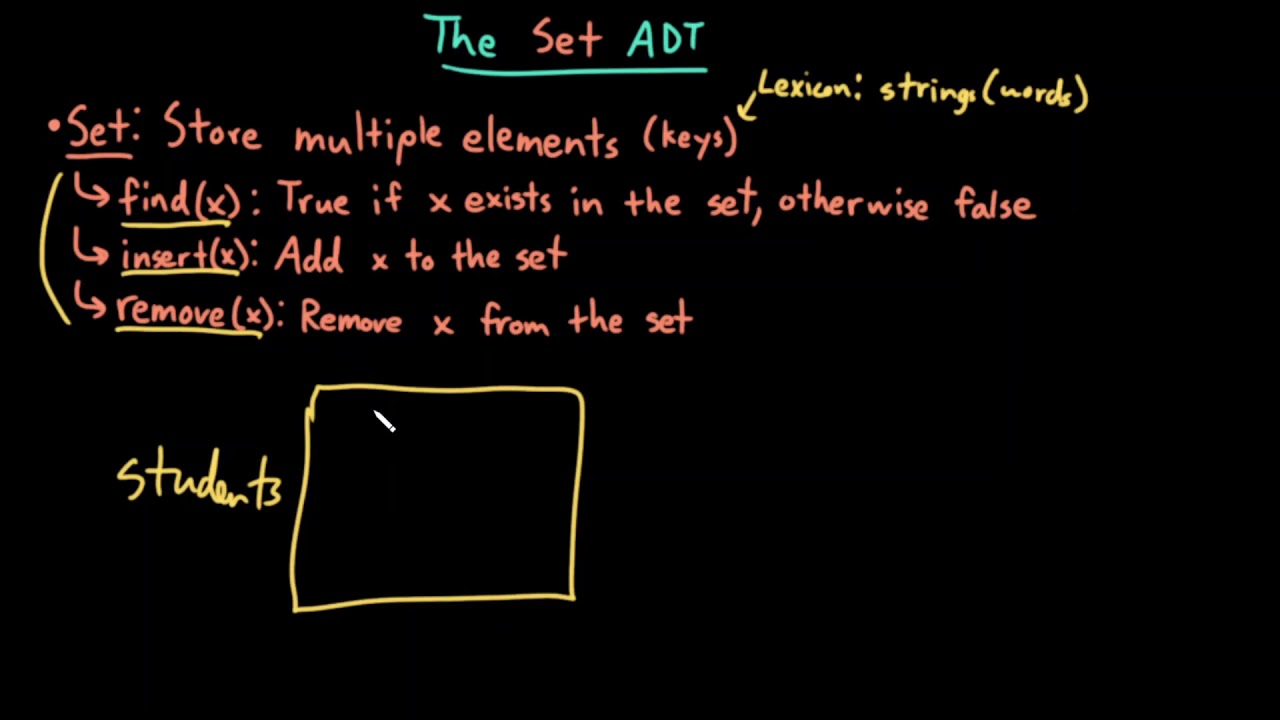 The Set ADT
Lexicon: strings (words)
• Set: Store multiple elements (keys)
↳ find(x): True if x exists in the set, otherwise false
↳ insert(x): Add x to the set
↳ remove(x): Remove x from the set
students